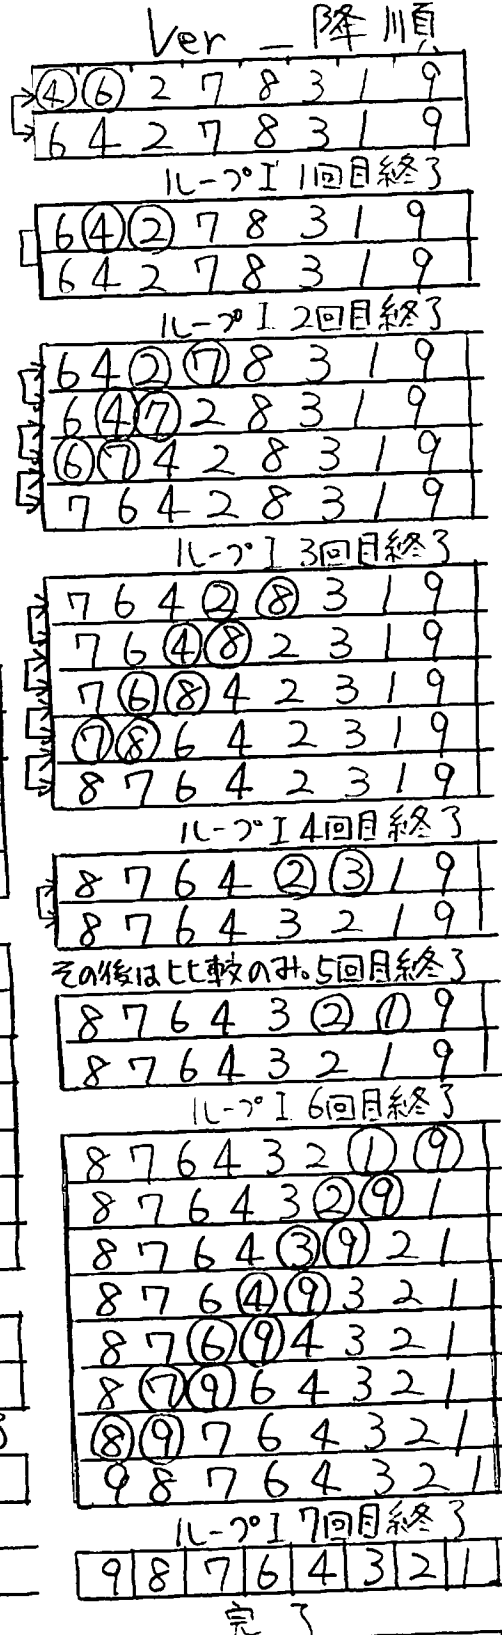 Ver _ 降順
4 6 2 7 8 3 1 9
6 4 2 7 8 3 1 9
ループI 1回目終了
6 4 2 7 8 3 1 9
6 4 2 7 8 3 1 9
ループI 2回目終了
6 4 2 7 8 3 1 9
6 4 7 2 8 3 1 9
6 7 4 2 8 3 1 9
7 6 4 2 8 3 1 9
ループI 3回目終了
7 6 4 2 8 3 1 9
7 6 4 8 2 3 1 9
7 6 8 4 2 3 1 9
7 8 6 4 2 3 1 9
8 7 6 4 2 3 1 9
ループI 4回目終了
8 7 6 4 2 3 1 9
8 7 6 4 3 2 1 9
その後は比較のみ。5回目終了
8 7 6 4 3 2 1 9
8 7 6 4 3 2 1 9
ループI 6回目終了
8 7 6 4 3 2 1 9
8 7 6 4 3 2 9 1
8 7 6 4 3 9 2 1
8 7 6 4 9 3 2 1
8 7 6 9 4 3 2 1
8 7 9 6 4 3 2 1
8 9 7 6 4 3 2 1
9 8 7 6 4 3 2 1
ループI 7回目終了
9 8 7 6 4 3 2 1
完了